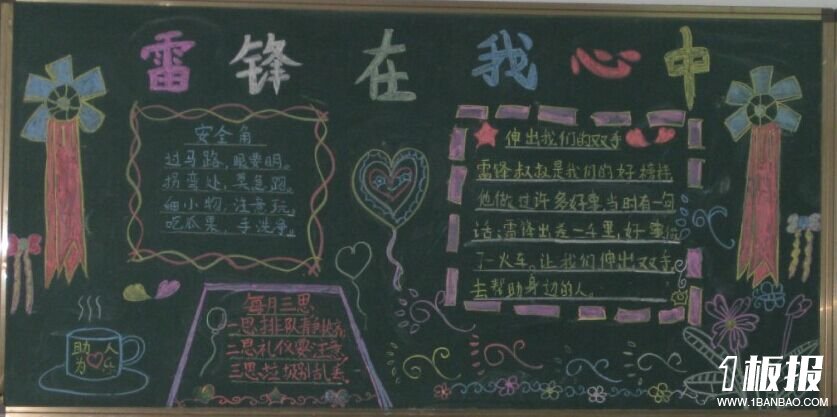 雷锋在我心中
安全角
过马路，眼要明。
拐弯处，莫急跑。
细小物，注意玩。
吃瓜果，手洗净。
每月三思
一思排队静
二思礼仪要注意
三思垃圾别乱丢
助人为乐
伸出我们的双手
雷锋叔叔是我们的好榜样
他做过许多好事当时有一句
话：雷锋出差一千里，好事做
了一火车。让我们伸出双手
去帮助身边的人。
1板报
WWW.1BANBAO.COM